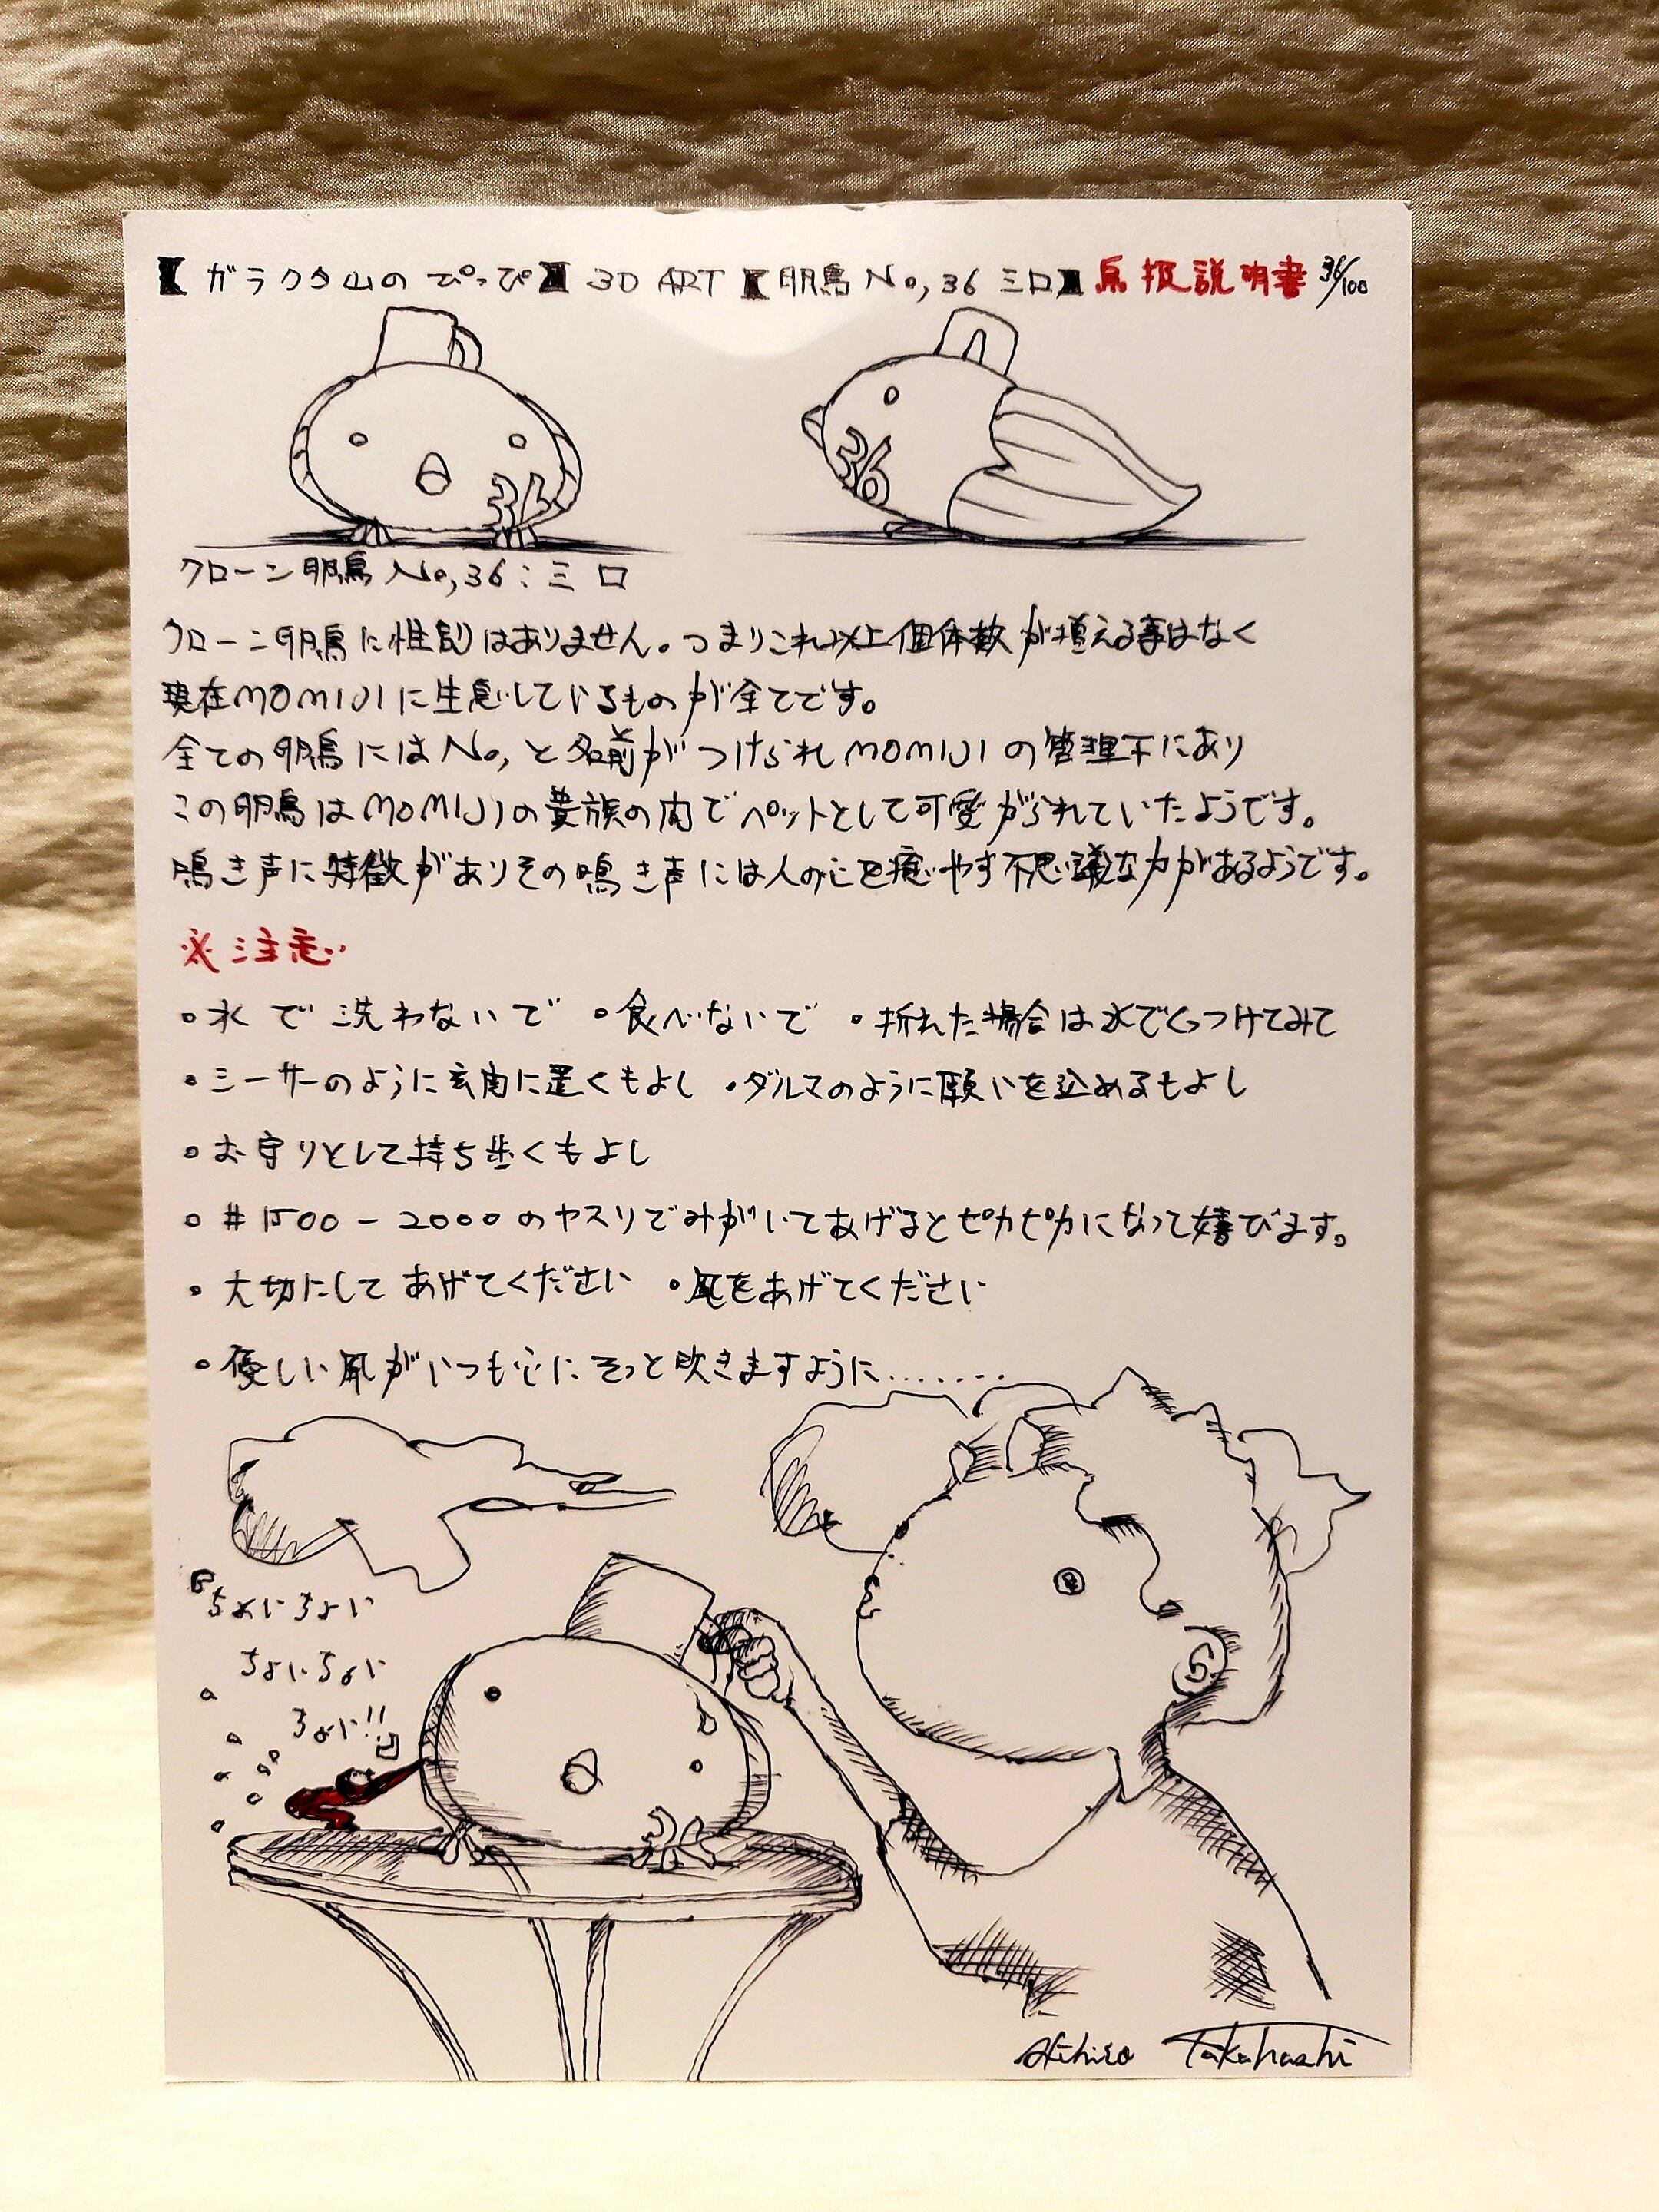 【ガラクタ山のぴっぴ】3D ART【朋鳥No,36 ミロ】鳥扱説明書 36/100
36
36
クローン朋鳥No,36:ミロ
クローン朋鳥に性別はありません。つまりこれ以上個体数が増える事はなく
現在MOMIJIに生息しているものが全てです。
全ての朋鳥にはNo,と名前がつけられMOMIJIの管理下にあり
この朋鳥はMOMIJIの貴族の間でペットとして可愛がられていたようです。
鳴き声に特徴がありその鳴き声には人の心を癒やす不思議な力があるようです。
※注意
・水で洗わないで ・食べないで ・折れた場合は水でくっつけてみて
・シーサーのように玄関に置くもよし ・ダルマのように願いを込めるもよし
・お守りとして持ち歩くもよし
・#1500-2000のヤスリでみがいてあげるとピカピカになって喜びます。
・大切にしてあげてください ・風をあげてください
・優しい風がいつも心にそっと吹きますように.......
『ちょいちょい
ちょいちょい
ちょい!!』
36
Akihiro Takahashi